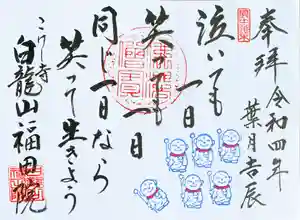 奉拝
令和四年
葉月吉辰
泣いても
一日
笑っても
一日
同じ一日なら
笑って生きよう
こけ寺
白龍山福田院